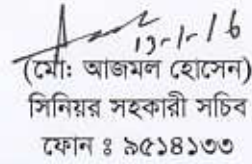 ১৩-১-১৬
(মো: আজমল হোসেন)
সিনিয়র সহকারী সচিব
ফোন ঃ ৯৫১৪১৩৩